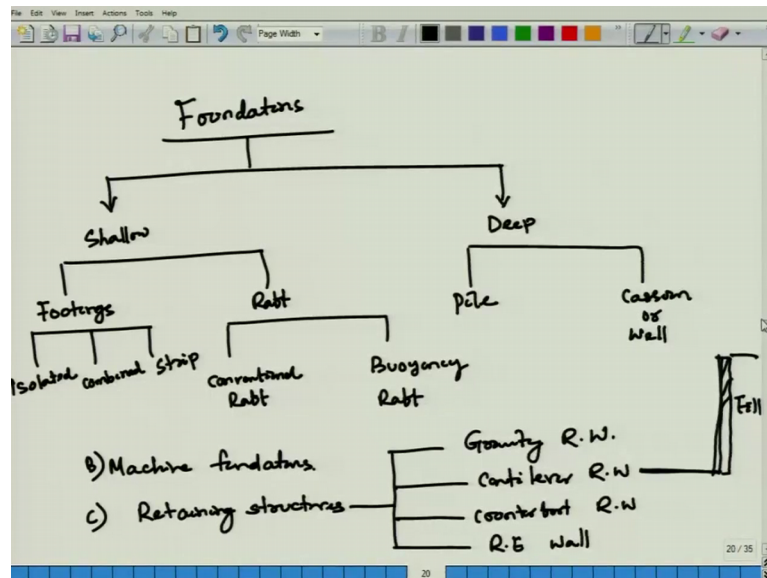 File Edit View Insert Actions Tools Help
Page Width
B I
Foundations
Shallow
Deep
Footings
Raft
Pile
Caisson
or
Well
Isolated
Combined
Strip
Conventional
Raft
Buoyancy
Raft
Fill
B) Machine foundations.
C) Retaining structures
Gravity R.W.
Cantilever R.W
Counterfort R.W
R.E Wall
20 / 35
20